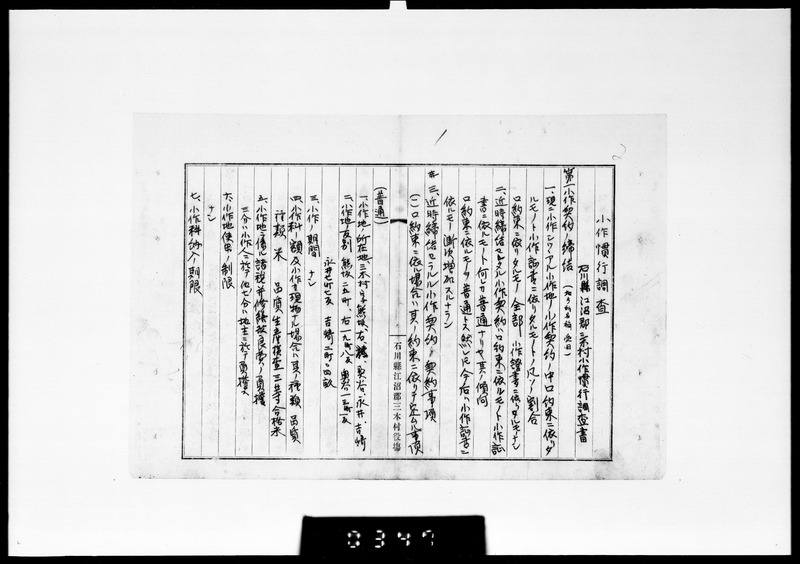 小作慣行調査
石川縣江沼郡三木村小作慣行調査書
第一小作契約ノ締結
一、現ニ小作シツアル小作地ノ小作契約ノ中口約束ニ依リタ
ルモノト小作証書ニ依リタルモノトノ凡ソノ割合
口約束ニ依リタルモノ全部 小作証書ニ依リタルモノナシ
二、近時締結セラルル小作契約ハ口約束ニ依ルモノト小作証
書ニ依ルモノト何レガ普通ナリヤ又其ノ傾向
口約束ニ依ルモノヲ普通トス然レ共今后ハ小作証書ニ
依ルモノ漸次増加スルナラン
三、近時締結セラルル小作契約ノ契約事項
(一)口約束ニ依ル場合ハ其ノ約束ニ依リテ定ムル事項
石川縣江沼郡三木村役場
(普通)
一、小作地ノ所在地 三木村
二、小作地ノ反別
三、小作ノ期間 ナシ
四、小作料ノ額及小作料現物ナル場合ハ其ノ種類品質
種類 米 品質 生産検査三等合格米
五、小作地ニ係ル諸税並修繕改良費ノ負擔
三分ハ小作人ニ於テ他七分ハ地主ニ於テ負擔ス
六、小作地使用ノ制限
ナシ
七、小作料納入期限
0347